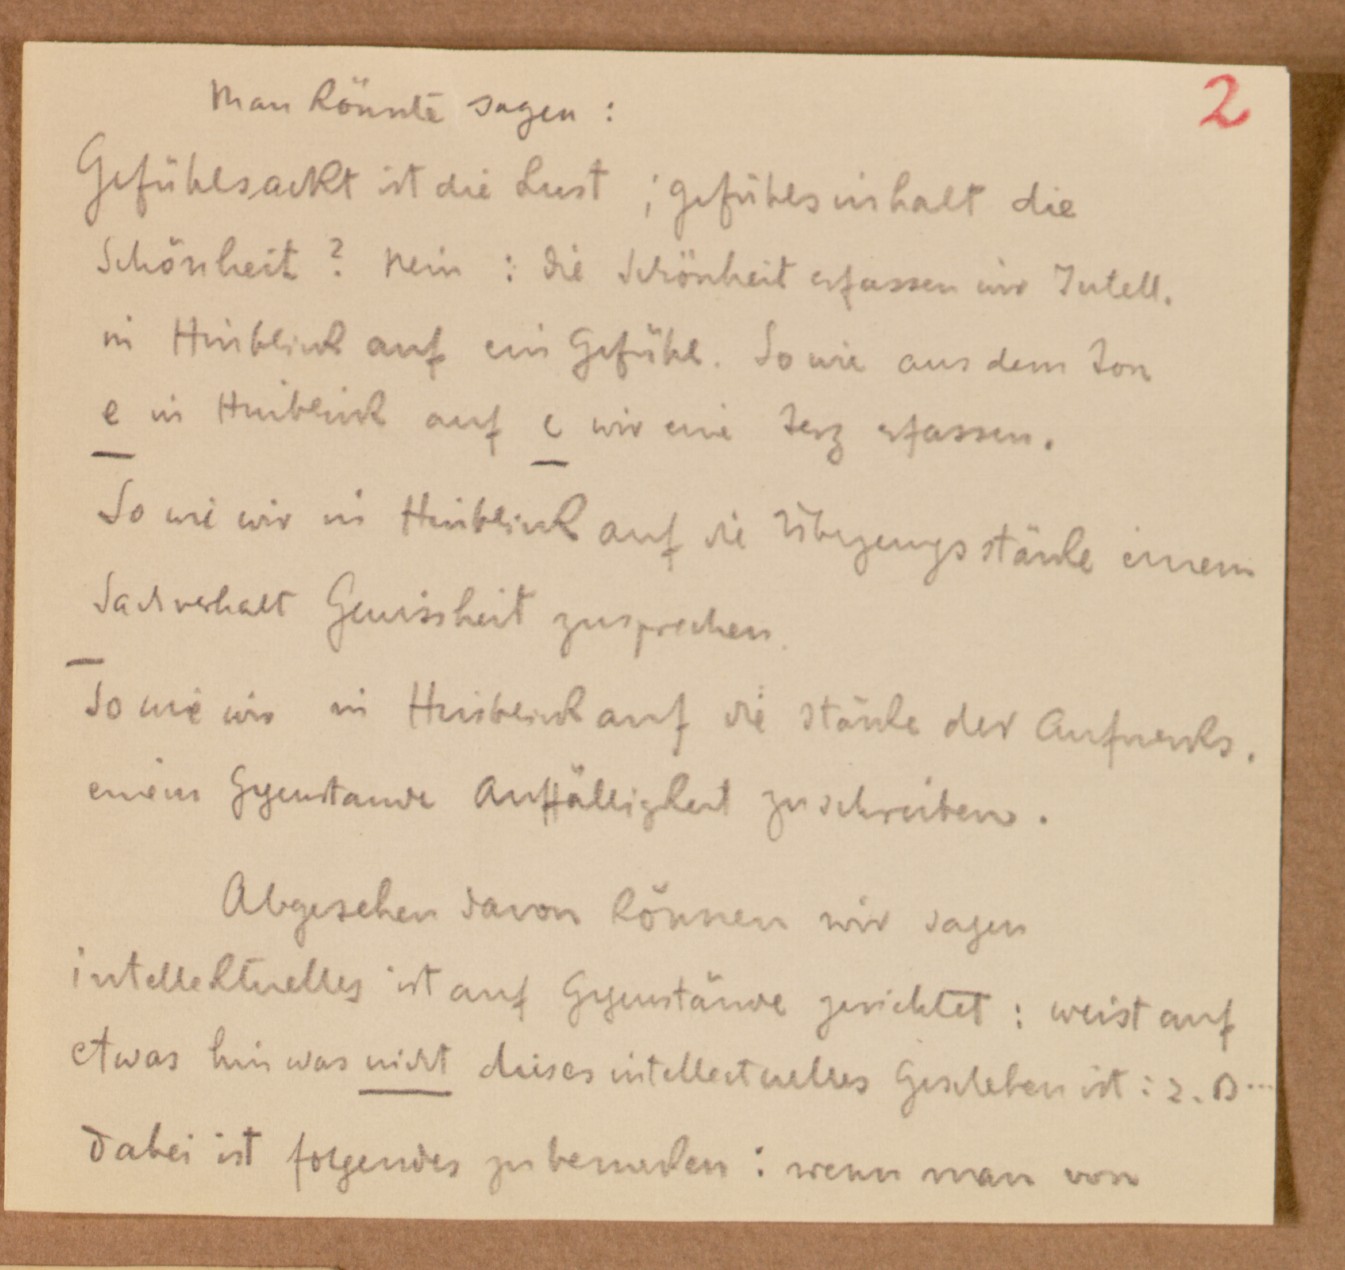 2
Man könnte sagen:
Gefühlsackt ist die Lust; gefühlsinhalt die
Schönheit? Nein: die Schönheit erfassen wir Intell.
in Hinblick auf ein Gefühl. So wie aus dem Ton
e in Hinblick auf c wir eine Terz erfassen.
So wie wir in Hinblick auf die Übzgungsstärke einem
Sachverhalt Gewissheit zusprechen.
So wie wir in Hinblick auf die Stärke der Aufmerks.
einem Gegenstande Auffälligkeit zuschreiben.
Abgesehen davon können wir sagen
intellektuelles ist auf Gegenstände gerichtet: weist auf
etwas hin was nicht dieses intellectuelles Geschehen ist: z. B...
Dabei ist folgendes zu bemerken: wenn man von